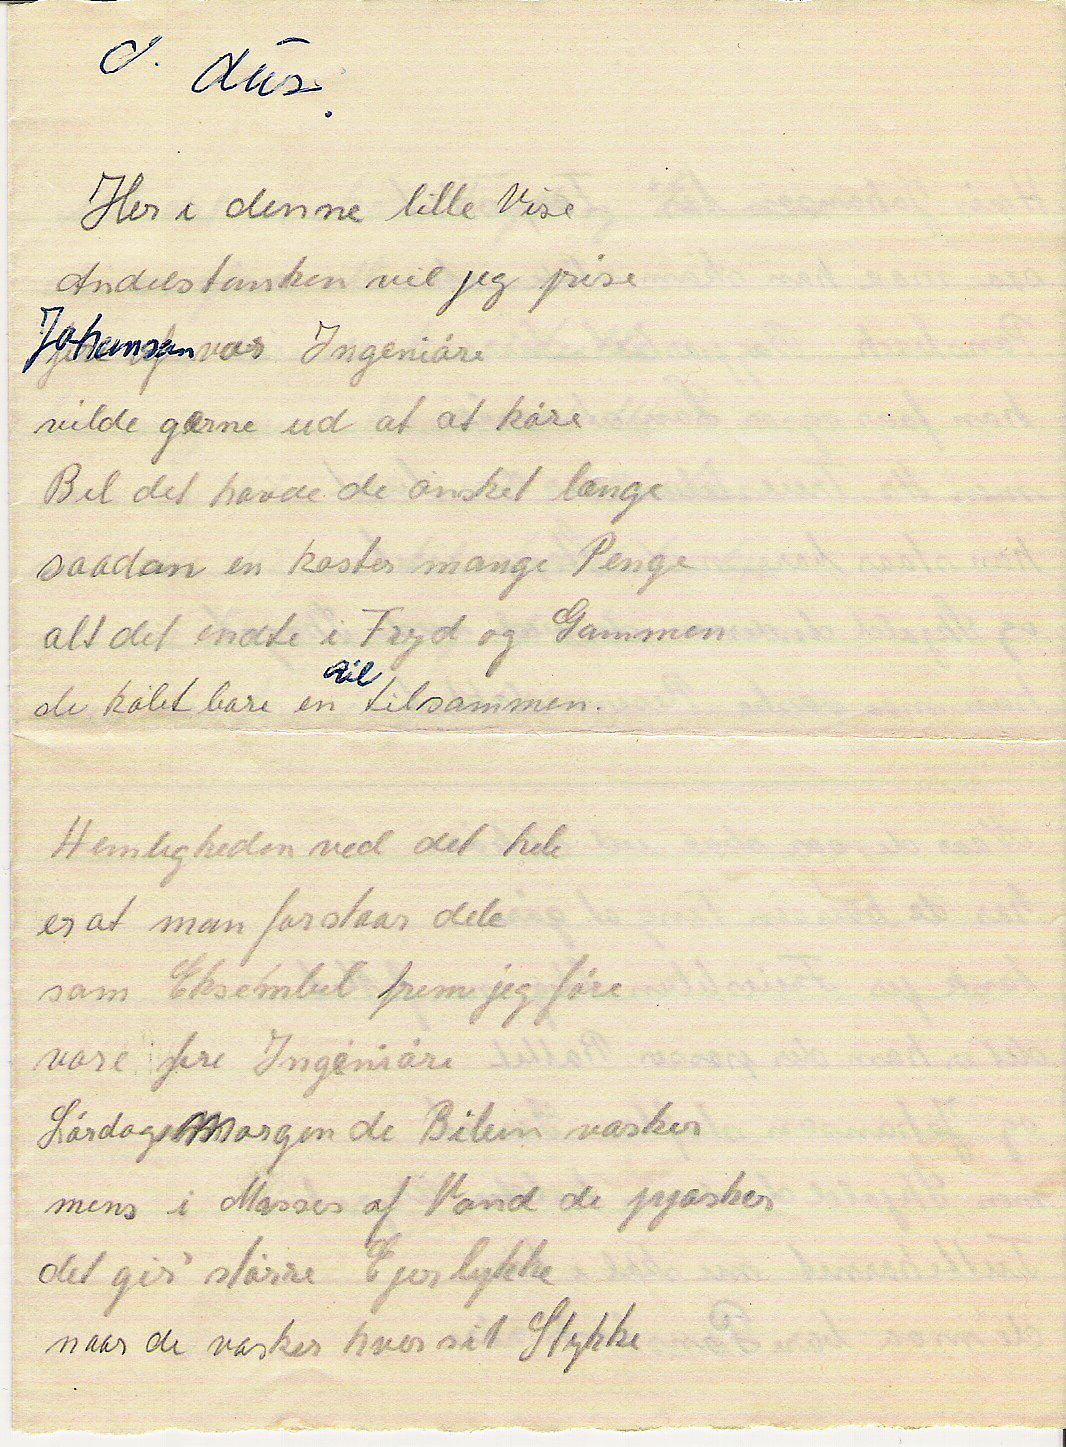 C. dur.
Her i denne lille Vise
Andelstanken vil jeg prise
Johansen var Ingeniøre
vilde gerne ud at at køre
Bil det havde de ønsket længe
saadan en koster mange Penge
alt det endte i Fryd og Gammen
de købt bare en
Bil
tilsammen.
Hemligheden ved det hele
er at man forstaar dele
som Eksembel frem jeg føre
vore fire Ingeniøre
Lørdag Morgen de Bilen vasker
mens i Masser af Vand de pjasker
det gir' større Ejerlykke
naar de vasker hver sit Stykke